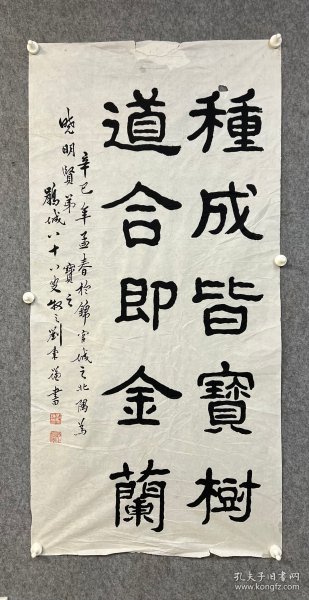 種成皆寶樹
道合即金蘭
辛巳年孟春於錦官城之北隅為
曉明賢弟寶之
鵑城八十八叟牧之劉東父書
孔夫子旧书网
www.kongfz.com